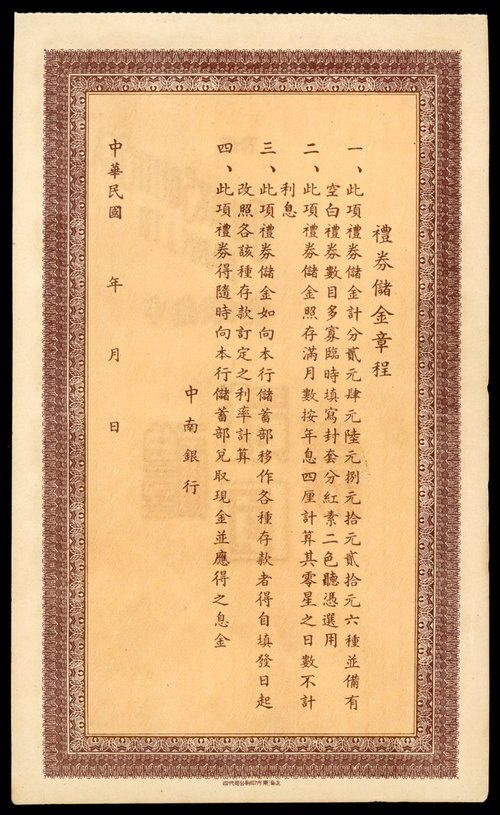 禮券儲金章程
一、此項禮券儲金計分貳元肆元陸元捌元拾元貳拾元六種並備有
空白禮券數目多寡臨時填寫封套分紅素二色聽憑選用
二、此項禮券儲金照存滿月數按年息四厘計算其零星之日數不計
利息
三、此項禮券儲金如向本行儲蓄部移作各種存款者得自填發日起
改照各該種存款訂定之利率計算
四、此項禮券得隨時向本行儲蓄部兌取現金並應得之息金
中南銀行
中華民國 年 月 日